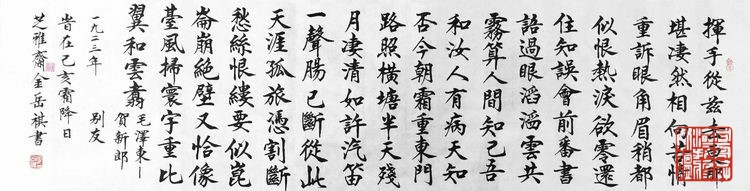 揮手從茲去更那
堪凄然相向苦情
重訴眼角眉稍都
似恨熱淚欲零還
住知誤會前番書
語過眼滔滔雲共
霧算人間知己吾
和汝人有病天知
否今朝霜重東門
路照橫塘半天殘
月凄清如許汽笛
一聲腸已斷從此
天涯孤旅憑割斷
愁絲恨縷要似崑
崙崩絕壁又恰像
臺風掃寰宇重比
翼和雲翥
毛澤東—
賀新郎
別友
一九二三年
旹在己亥霜降日
芝雅齋金岳祺書